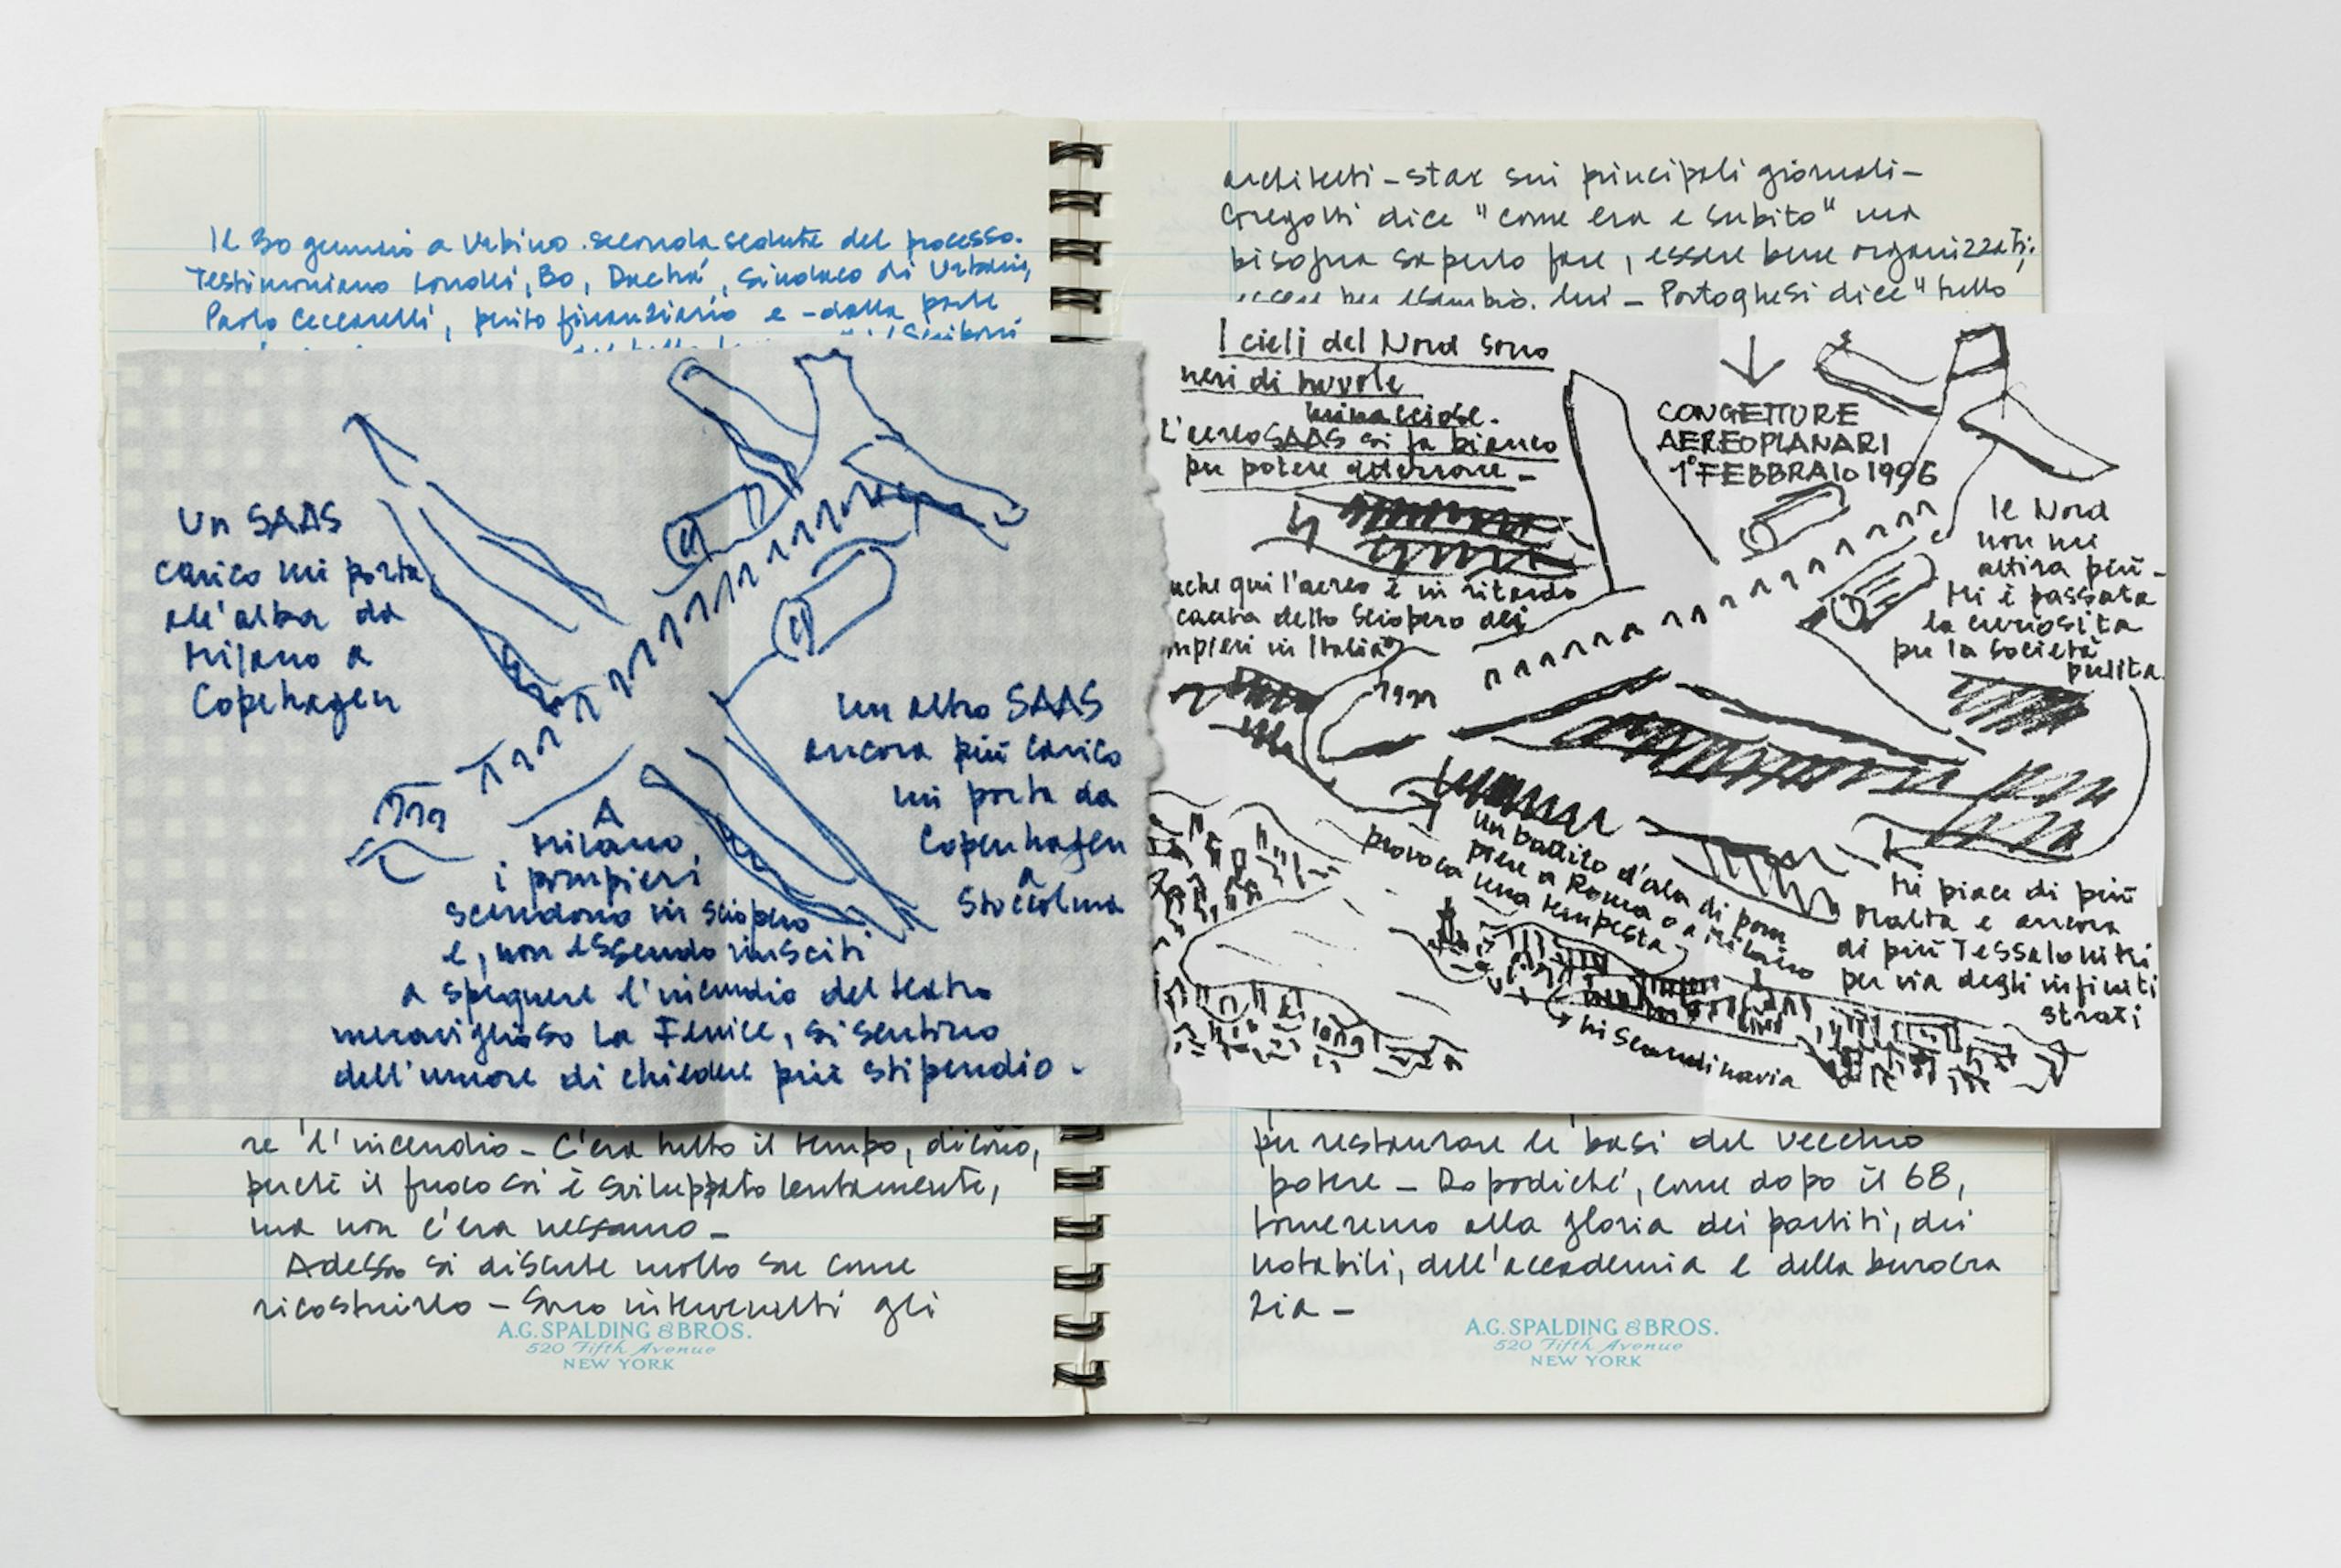 Il 30 gennaio a Urbino seconda seduta del processo.
Testimoniano Londei, Bo, Dachà, sindaco di Urbania,
Paolo Ceccarelli, perito finanziario e - dalla parte
Un SAAS
carico mi porta
all'alba da
Milano a
Copenhagen
un altro SAAS
ancora più carico
mi porta da
Copenhagen
a
Stoccolma
A
Milano,
i pompieri
scendono in sciopero
e, non essendo riusciti
a spegnere l'incendio del teatro
meraviglioso La Fenice, si sentono
dell'umore di chiedere più stipendio -
re l'incendio - C'era tutto il tempo, dicono,
perché il fuoco si è sviluppato lentamente,
ma non c'era nessuno -
Adesso si discute molto su come
ricostruirlo - Sono intervenuti gli
A.G. SPALDING & BROS.
520 Fifth Avenue
NEW YORK
architetti-star sui principali giornali -
Gregotti dice "come era e subito" ma
bisogna saperlo fare, essere bene organizzati;
lui - Portoghesi dice "tutto
I cieli del Nord sono
neri di nuvole
minacciose.
L'aereo SAAS si fa bianco
per potere atterrare -
anche qui l'aereo è in ritardo
causa dello sciopero dei
mpieri in Italia
CONGETTURE
AEREOPLANARI
1° FEBBRAIO 1996
Il Nord
non mi
attira più -
Mi è passata
la curiosità
per la società
pulita
Un battito d'ala di pom
piere a Roma o a Milano
provoca una tempesta
in Scandinavia
Mi piace di più
Malta e ancora
di più Tessaloniki
per via degli infiniti
strati
per restaurare le basi del vecchio
potere - Dopodiché, come dopo il 68,
torneremo alla gloria dei partiti, dei
notabili, dell'accademia e della burocra
zia -
A.G. SPALDING & BROS.
520 Fifth Avenue
NEW YORK